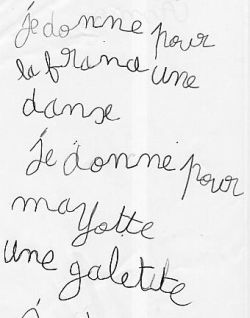 je donne pour
la france une
danse
je donne pour
mayotte
une galetite